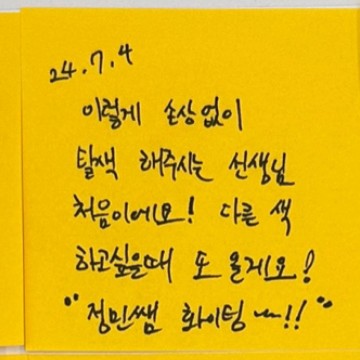 24.7.4
이렇게 손상없이
탈색 해주시는 선생님
처음이에요! 다른 색
하고싶을때 또 올게요!
"정민쌤 화이팅~!!"